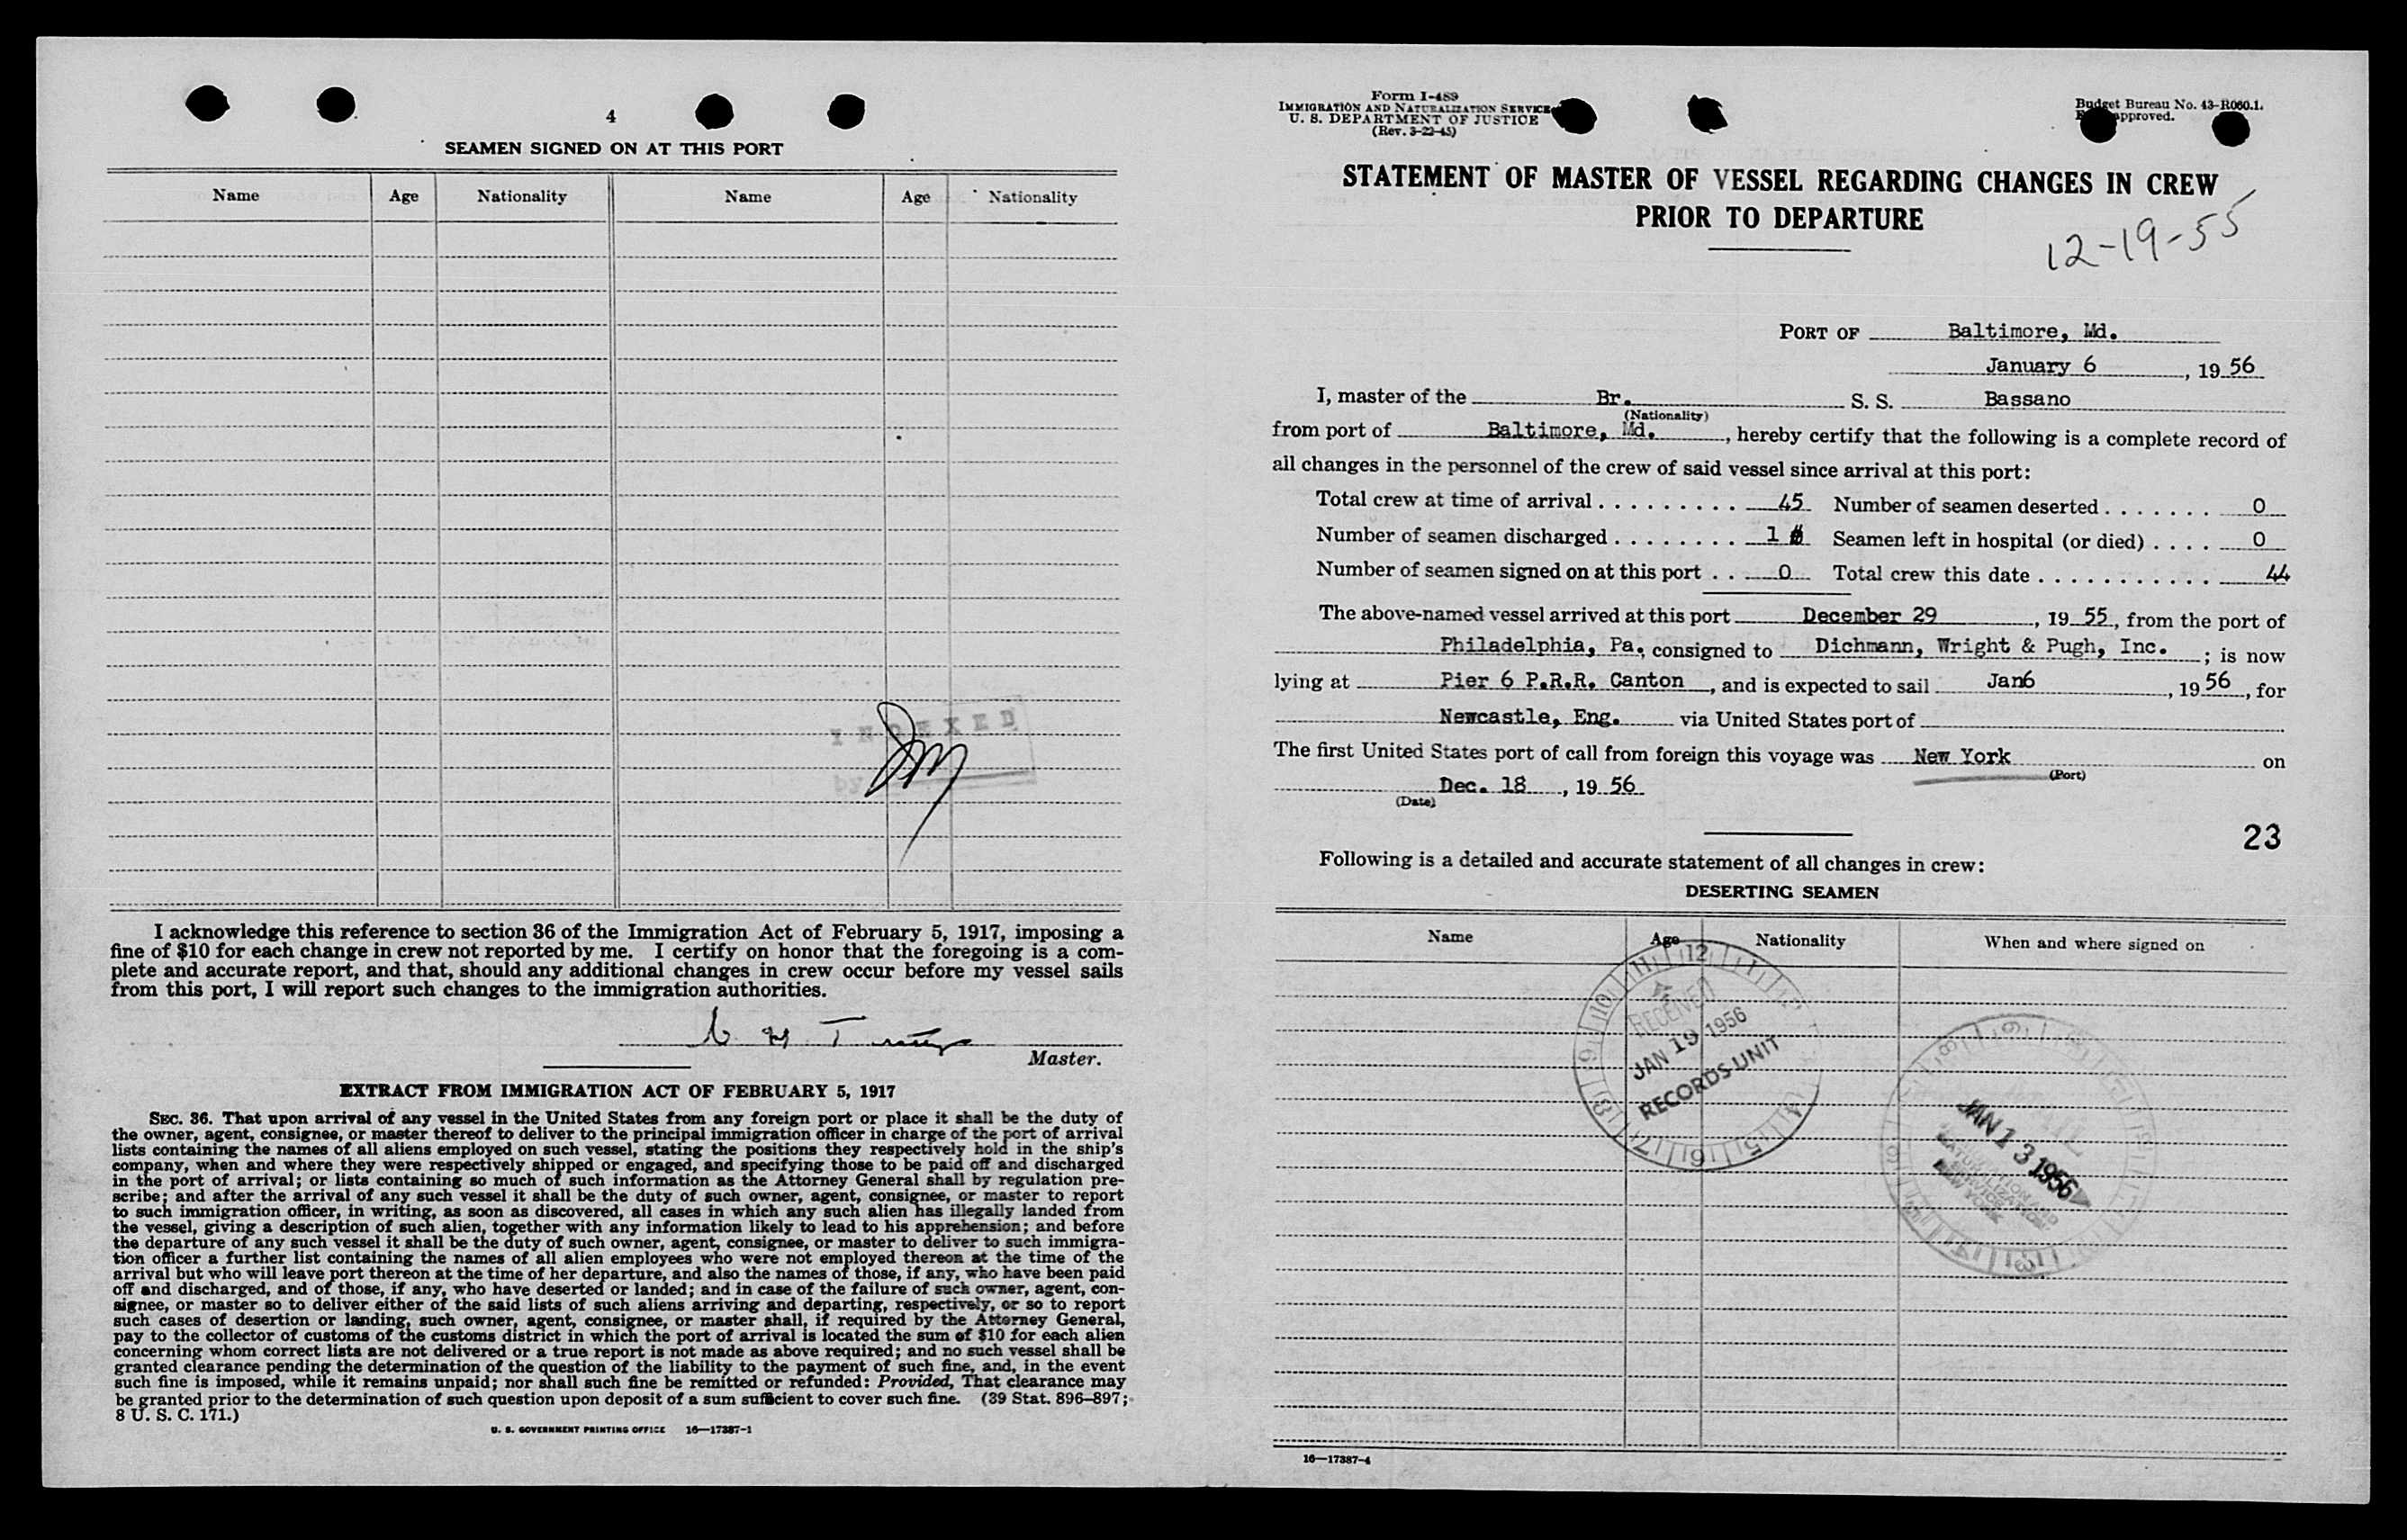 4
SEAMEN SIGNED ON AT THIS PORT
Name Age Nationality Name Age Nationality
INDEXED
by
I acknowledge this reference to section 36 of the Immigration Act of February 5, 1917, imposing a
fine of $10 for each change in crew not reported by me. I certify on honor that the foregoing is a com-
plete and accurate report, and that, should any additional changes in crew occur before my vessel sails
from this port, I will report such changes to the immigration authorities.
Master.
EXTRACT FROM IMMIGRATION ACT OF FEBRUARY 5, 1917
SEC. 36. That upon arrival of any vessel in the United States from any foreign port or place it shall be the duty of
the owner, agent, consignee, or master thereof to deliver to the principal immigration officer in charge of the port of arrival
lists containing the names of all aliens employed on such vessel, stating the positions they respectively hold in the ship's
company, when and where they were respectively shipped or engaged, and specifying those to be paid off and discharged
in the port of arrival; or lists containing so much of such information as the Attorney General shall by regulation pre-
scribe; and after the arrival of any such vessel it shall be the duty of such owner, agent, consignee, or master to report
to such immigration officer, in writing, as soon as discovered, all cases in which any such alien has illegally landed from
the vessel, giving a description of such alien, together with any information likely to lead to his apprehension; and before
the departure of any such vessel it shall be the duty of such owner, agent, consignee, or master to deliver to such immigra-
tion officer a further list containing the names of all alien employees who were not employed thereon at the time of the
arrival but who will leave port thereon at the time of her departure, and also the names of those, if any, who have been paid
off and discharged, and of those, if any, who have deserted or landed; and in case of the failure of such owner, agent, con-
signee, or master so to deliver either of the said lists of such aliens arriving and departing, respectively, or so to report
such cases of desertion or landing, such owner, agent, consignee, or master shall, if required by the Attorney General,
pay to the collector of customs of the customs district in which the port of arrival is located the sum of $10 for each alien
concerning whom correct lists are not delivered or a true report is not made as above required; and no such vessel shall be
granted clearance pending the determination of the question of the liability to the payment of such fine, and, in the event
such fine is imposed, while it remains unpaid; nor shall such fine be remitted or refunded: Provided, That clearance may
be granted prior to the determination of such question upon deposit of a sum sufficient to cover such fine. (39 Stat. 896–897;
8 U. S. C. 171.)
U. S. GOVERNMENT PRINTING OFFICE 16—17387-1
Form I-489
IMMIGRATION AND NATURALIZATION SERVICE
U. S. DEPARTMENT OF JUSTICE
(Rev. 3-22-45)
Budget Bureau No. 43-R060.1.
approved.
STATEMENT OF MASTER OF VESSEL REGARDING CHANGES IN CREW
PRIOR TO DEPARTURE
12-19-55
PORT OF Baltimore, Md.
January 6, 1956
I, master of the Br. S. S. Bassano
(Nationality)
from port of Baltimore, Md., hereby certify that the following is a complete record of
all changes in the personnel of the crew of said vessel since arrival at this port:
Total crew at time of arrival . . . . . . . . . . 45 Number of seamen deserted . . . . . . . 0
Number of seamen discharged . . . . . . . . 1 Seamen left in hospital (or died) . . . . 0
Number of seamen signed on at this port . . 0 Total crew this date . . . . . . . . . . . . 44
The above-named vessel arrived at this port December 29, 1955, from the port of
Philadelphia, Pa. consigned to Dichmann, Wright & Pugh, Inc.; is now
lying at Pier 6 P.R.R. Canton, and is expected to sail Jan6, 1956, for
Newcastle, Eng. via United States port of
The first United States port of call from foreign this voyage was New York on
(Port)
Dec. 18, 1956
(Date)
23
Following is a detailed and accurate statement of all changes in crew:
DESERTING SEAMEN
Name Age Nationality When and where signed on
RECEIVED
JAN 19 1956
RECORDS UNIT
JAN 13 1956
16—17387-4